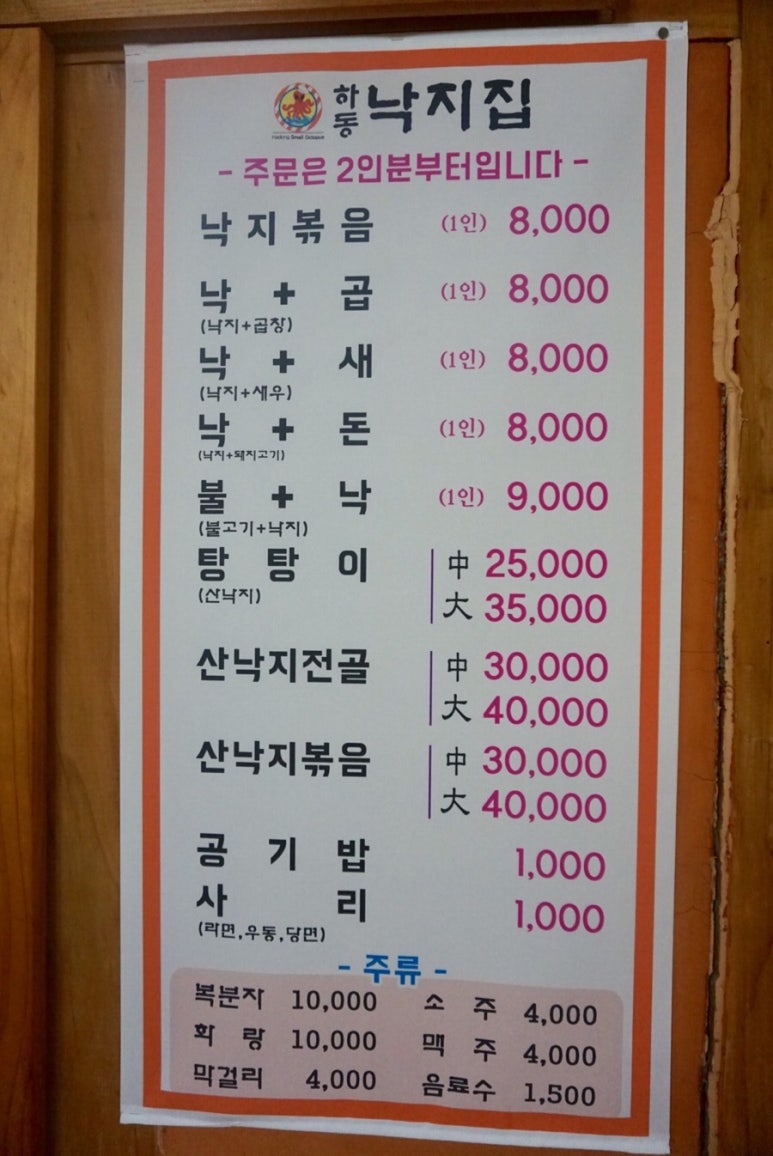 하동 낙지집
Hadong Small Octopus
- 주문은 2인분부터입니다 -
낙지볶음 (1인) 8,000
낙 + 곱 (1인) 8,000
(낙지+곱창)
낙 + 새 (1인) 8,000
(낙지+새우)
낙 + 돈 (1인) 8,000
(낙지+돼지고기)
불 + 낙 (1인) 9,000
(불고기+낙지)
탕탕이 中 25,000
(산낙지) 大 35,000
산낙지전골 中 30,000
大 40,000
산낙지볶음 中 30,000
大 40,000
공기밥 1,000
사리 1,000
(라면,우동,당면)
- 주류 -
복분자 10,000 소주 4,000
화랑 10,000 맥주 4,000
막걸리 4,000 음료수 1,500